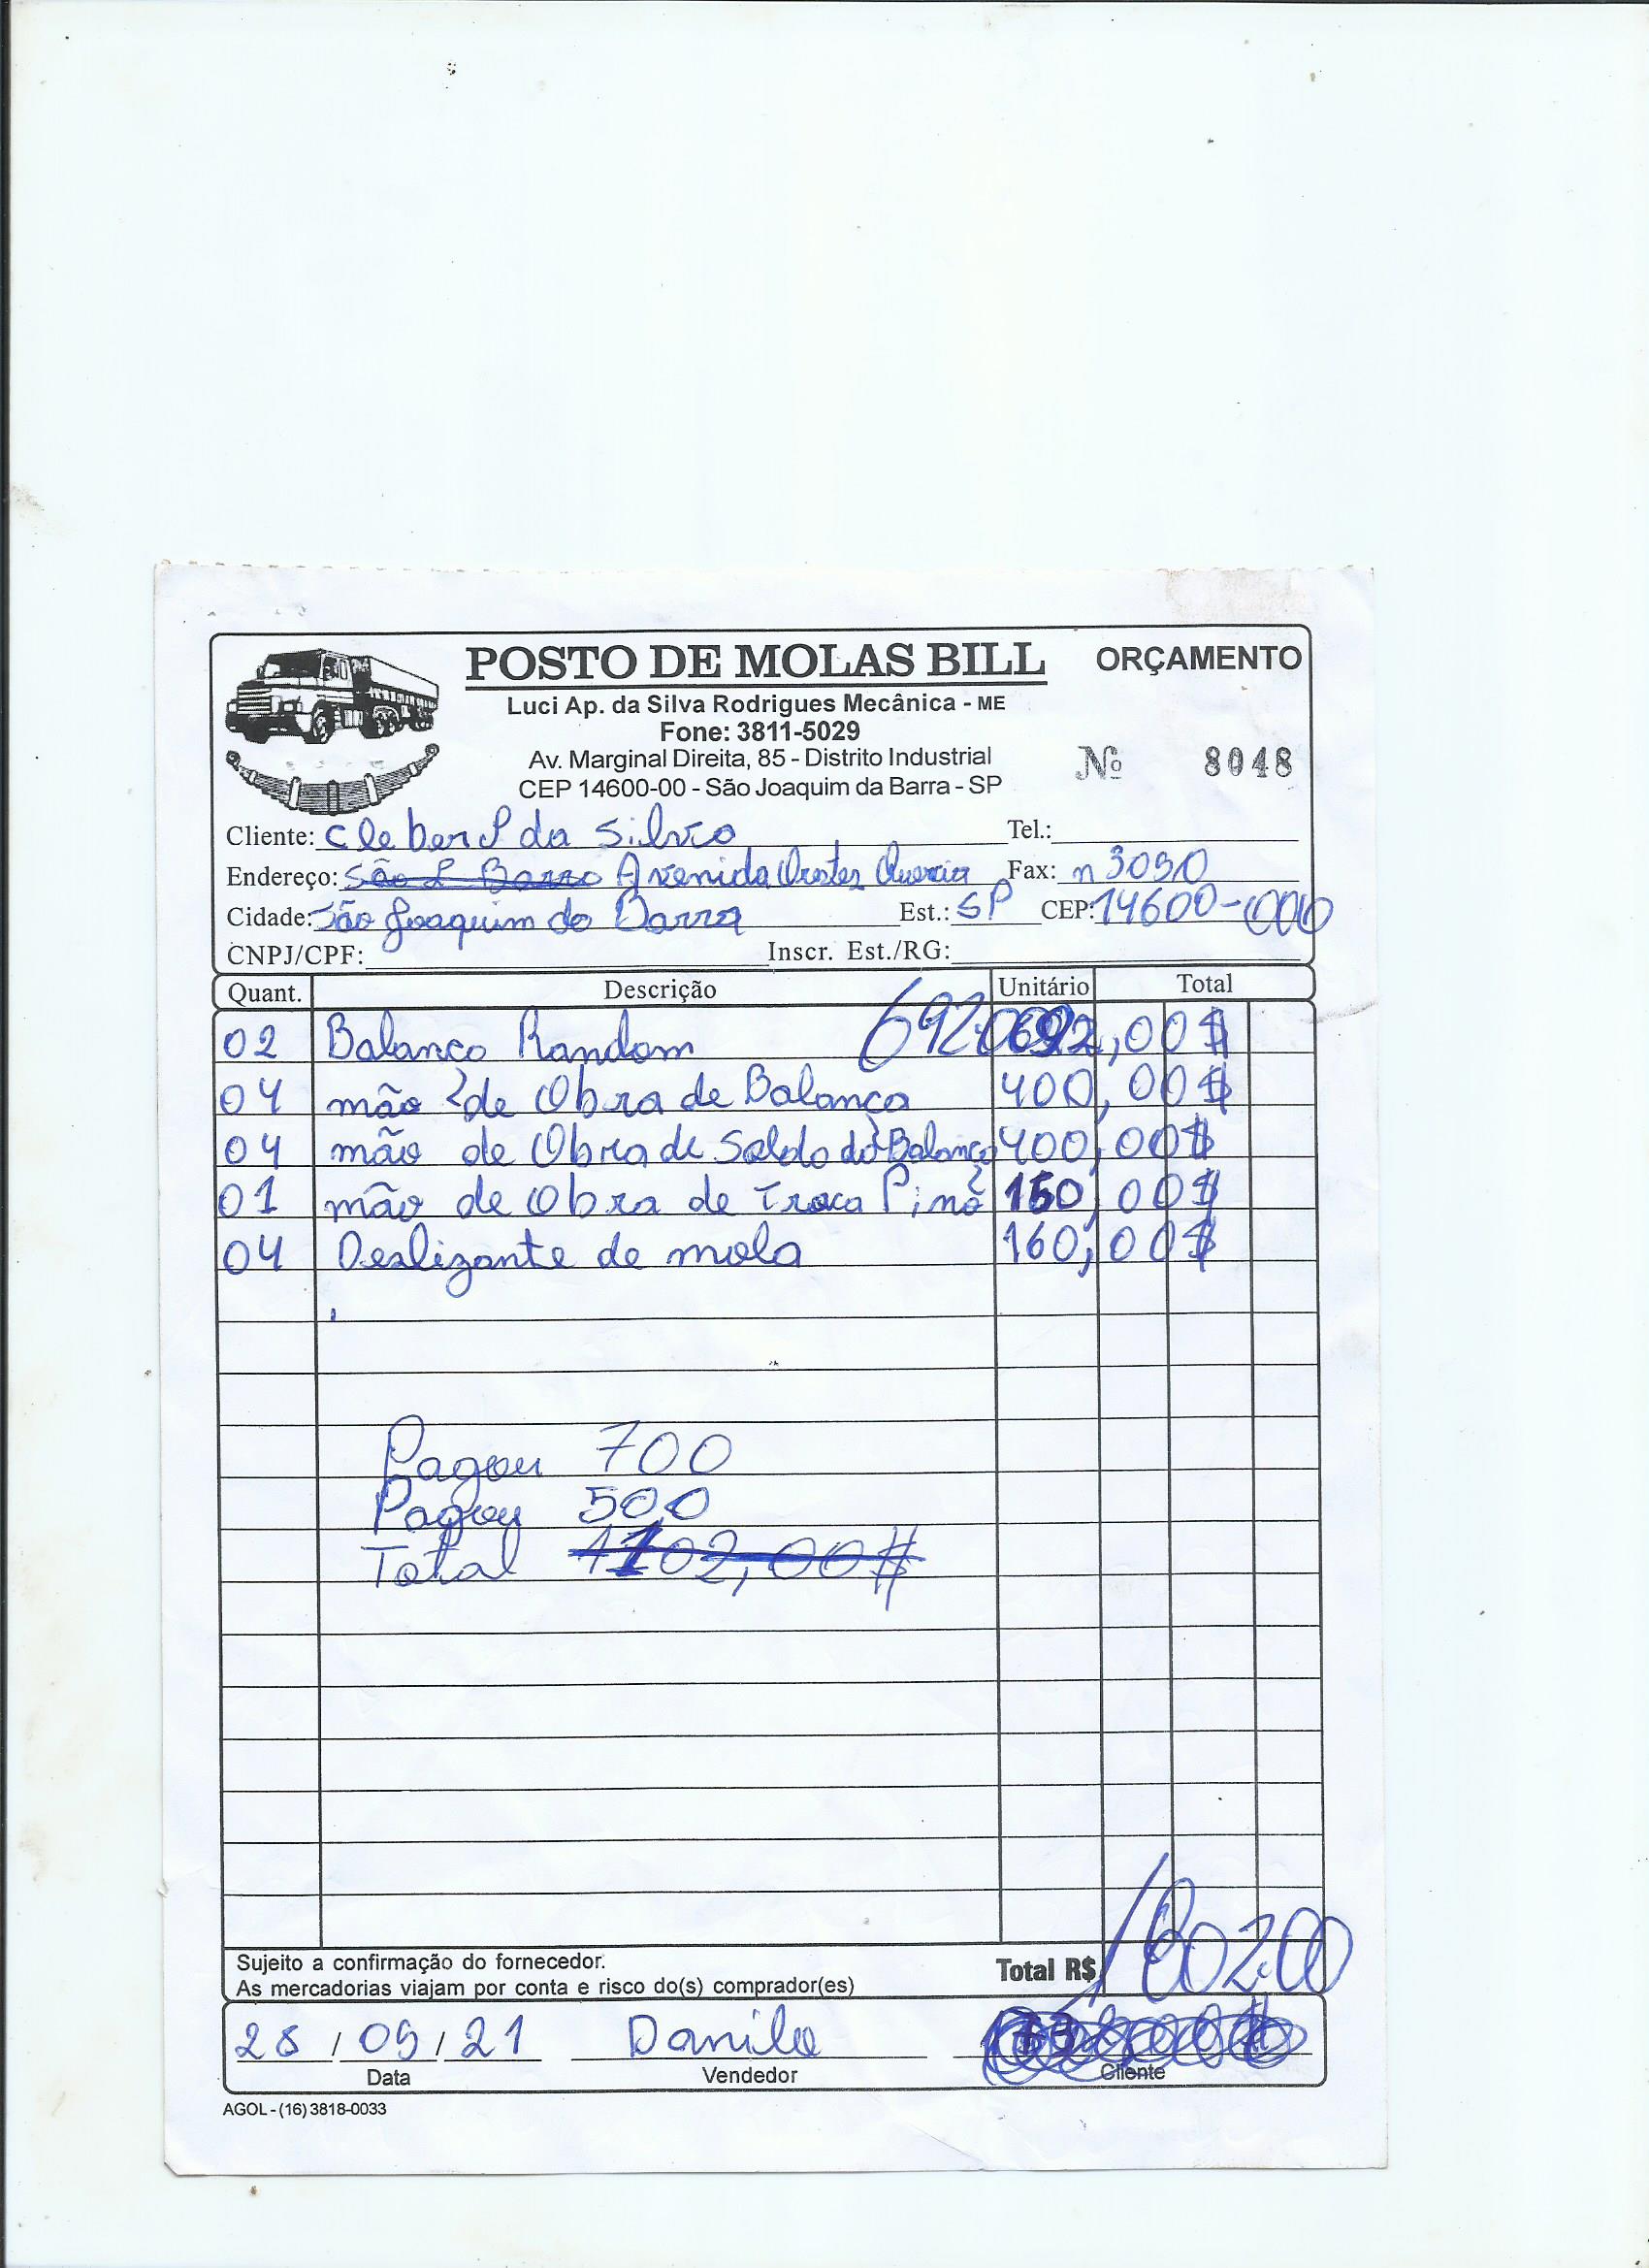 POSTO DE MOLAS BILL ORÇAMENTO
Luci Ap. da Silva Rodrigues Mecânica - ME
Fone: 3811-5029
Av. Marginal Direita, 85 - Distrito Industrial
Nº 8048
CEP 14600-00 - São Joaquim da Barra - SP
Cliente: Cleber P da Silva Tel.:
Endereço: Avenida Orestes Quercia Fax: n 3090
Cidade: São Joaquim da Barra Est.: SP CEP: 14600-000
CNPJ/CPF: Inscr. Est./RG:
Quant. Descrição Unitário Total
02 Balança Random 692,00 692,00$
04 mão de Obra de Balança 400,00$
04 mão de Obra de Solda da Balança 400,00$
01 mão de Obra de Troca Pino 150,00$
04 Deslizante de mola 160,00$
Pagou 700
Pagou 500
Total 1102,00$
Sujeito a confirmação do fornecedor.
As mercadorias viajam por conta e risco do(s) comprador(es)
Total R$ 1802,00
28 / 09 / 21 Danilo
Data Vendedor Cliente
AGOL - (16) 3818-0033